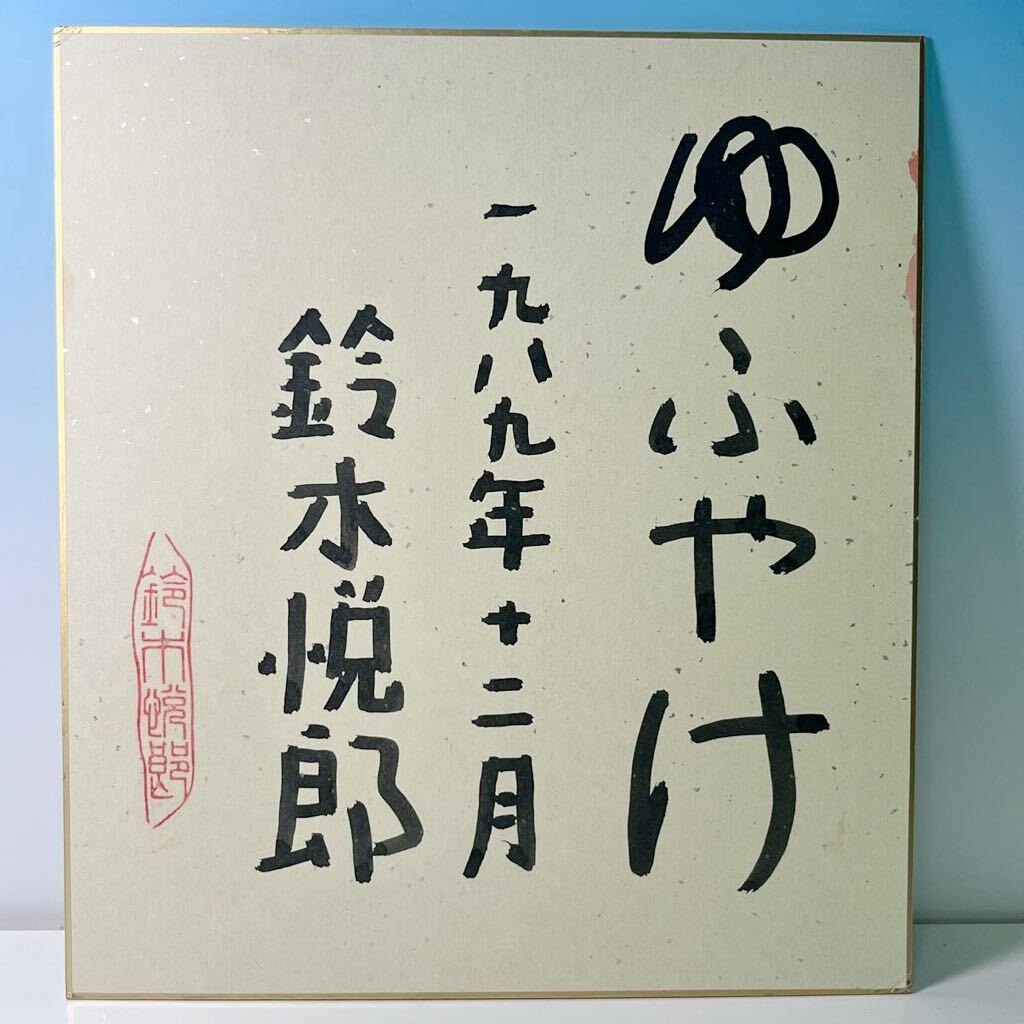 ゆふやけ
一九八九年十二月
鈴木悦郎
鈴木悦郎